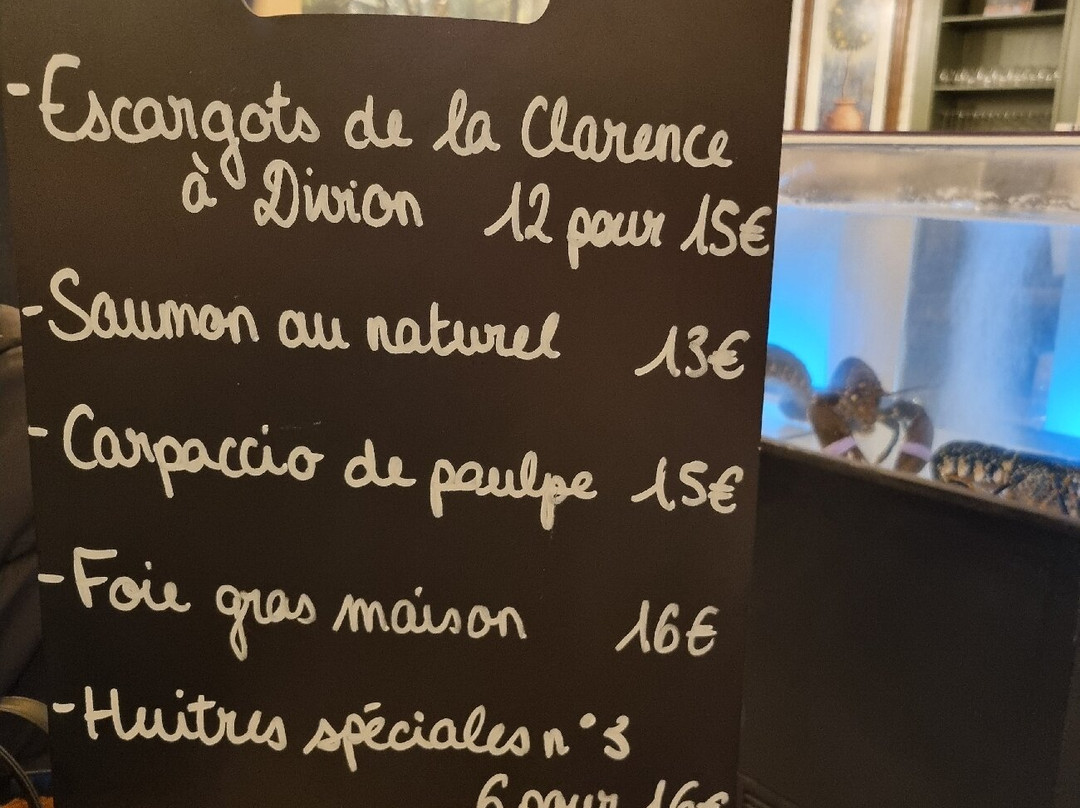 - Escargots de la Clarence
à Divion 12 pour 15€
- Saumon au naturel 13€
- Carpaccio de poulpe 15€
- Foie gras maison 16€
- Huitres spéciales n°3
6 pour 16€